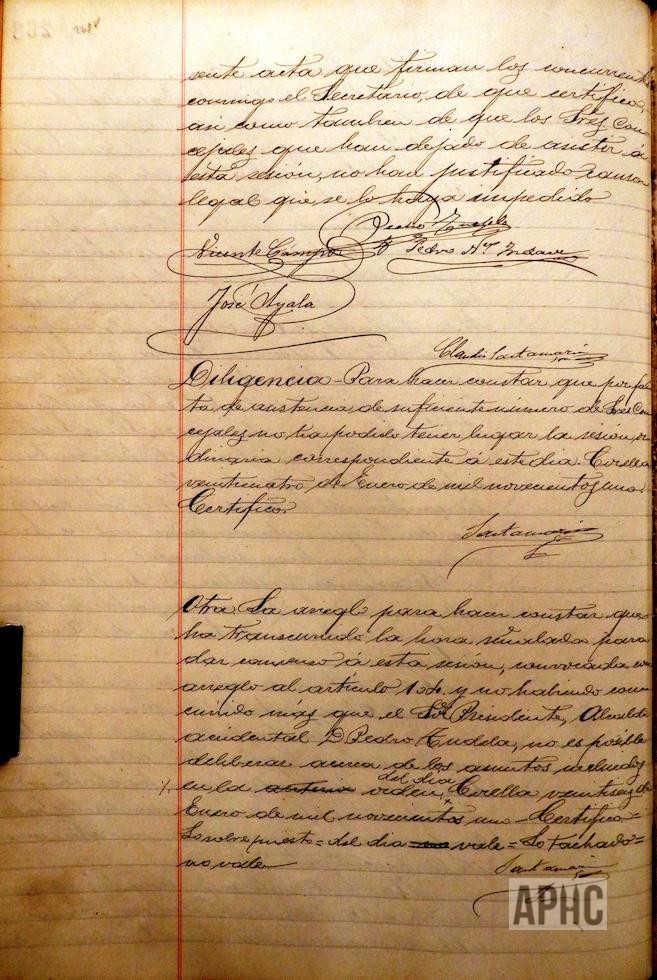 sente acta que firman los concurrentes
conmigo el Secretario, de que certifico,
asi como tambien de que los Sres Con
cejales que han dejado de asistir á
esta sesión, no han justificado causa
legal que se lo haya impedido
Pedro Tudela
Vicente Campos Pedro Mª
José Ayala
Claudio Santamaria
Diligencia - Para hacer constar que por fal
ta de asistencia de suficiente número de Sres Con
cejales no ha podido tener lugar la sesión or
dinaria correspondiente á este dia. Corella
veinticuatro de Enero de mil novecientos uno.
Certifico.
Santamaria
Otra La arreglo para hacer constar que
ha transcurrido la hora señalada para
dar comienzo á esta sesion, convocada con
arreglo al artículo 104 y no habiendo concu
rrido más que el Sor Presidente, Alcalde
accidental D Pedro Tudela, no es posible
deliberar acerca de los asuntos incluidos
en la orden del dia, Corella veintiseis de
Enero de mil novecientos uno - Certifico =
Lo sobrepuesto = del dia = vale = Lo tachado =
no vale
Santamaria
APHC